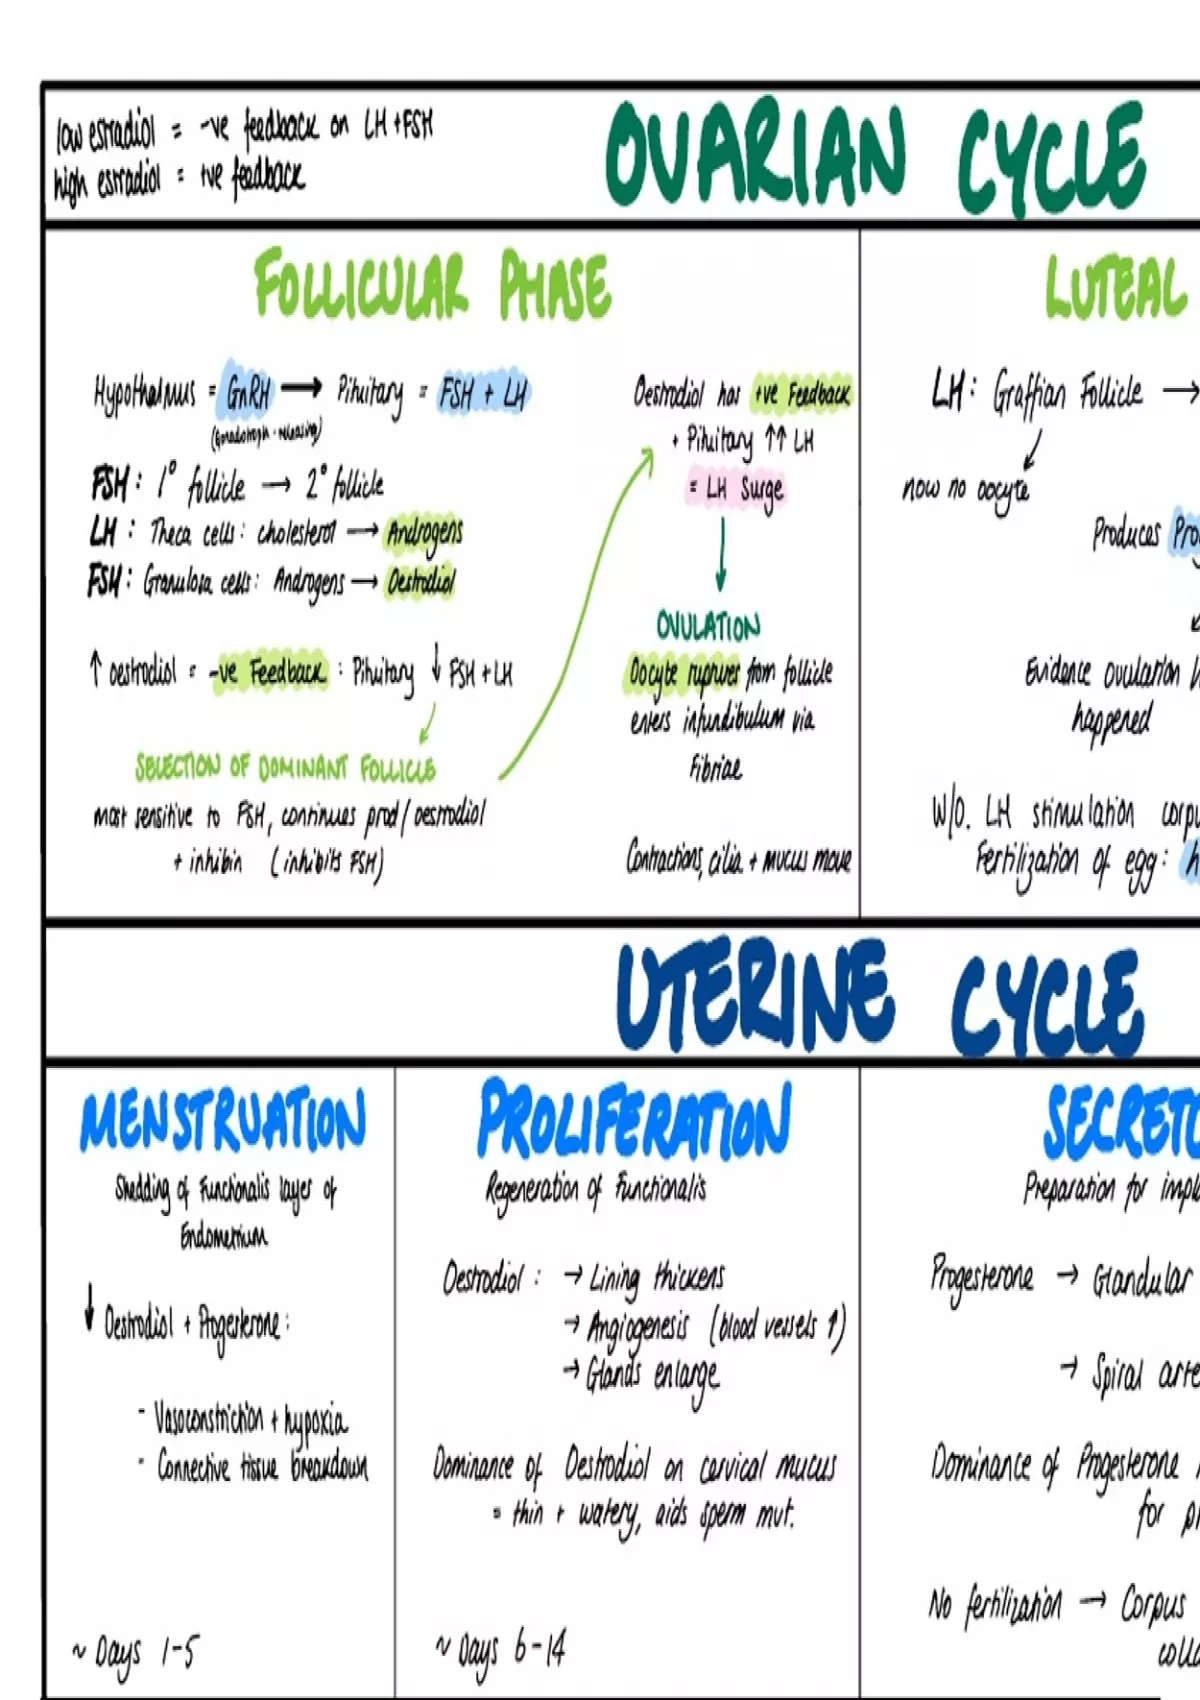 low estradiol = -ve feedback on LH + FSH
high estradiol = +ve feedback
OVARIAN CYCLE
FOLLICULAR PHASE
Hypothalmus = GnRH → Pituitary = FSH + LH
(Gonadotroph-releasing)
FSH: 1° follicle → 2° follicle
LH: Theca cells: cholesterol → Androgens
FSH: Granulosa cells: Androgens → Oestrodiol
↑ oestrodiol = -ve Feedback: Pituitary ↓ FSH + LH
SELECTION OF DOMINANT FOLLICLE
most sensitive to FSH, continues prod/oestrodiol
+ inhibin (inhibits FSH)
Oestrodiol has +ve Feedback
+ Pituitary ↑↑ LH
= LH Surge
OVULATION
Oocyte ruptures from follicle
enters infundibulum via
Fibriae
Contractions, cilia + mucus move
LUTEAL
LH: Graffian Follicle →
now no oocyte
Produces
Evidence ovulation
happened
W/O. LH stimulation
Fertilization of egg:
UTERINE CYCLE
MENSTRUATION
Shedding of Functionalis layer of
Endometrium
↓ Oestrodiol + Progesterone:
- Vasoconstriction + hypoxia
- Connective tissue breakdown
~ Days 1-5
PROLIFERATION
Regeneration of Functionalis
Oestrodiol: → Lining thickens
→ Angiogenesis (blood vessels ↑)
→ Glands enlarge
Dominance of Oestrodiol on cervical mucus
= thin + watery, aids sperm mvt.
~ Days 6-14
Preparation for
Progesterone → Glandular
→ Spiral
Dominance of Progesterone
for
No fertilization → Corpus